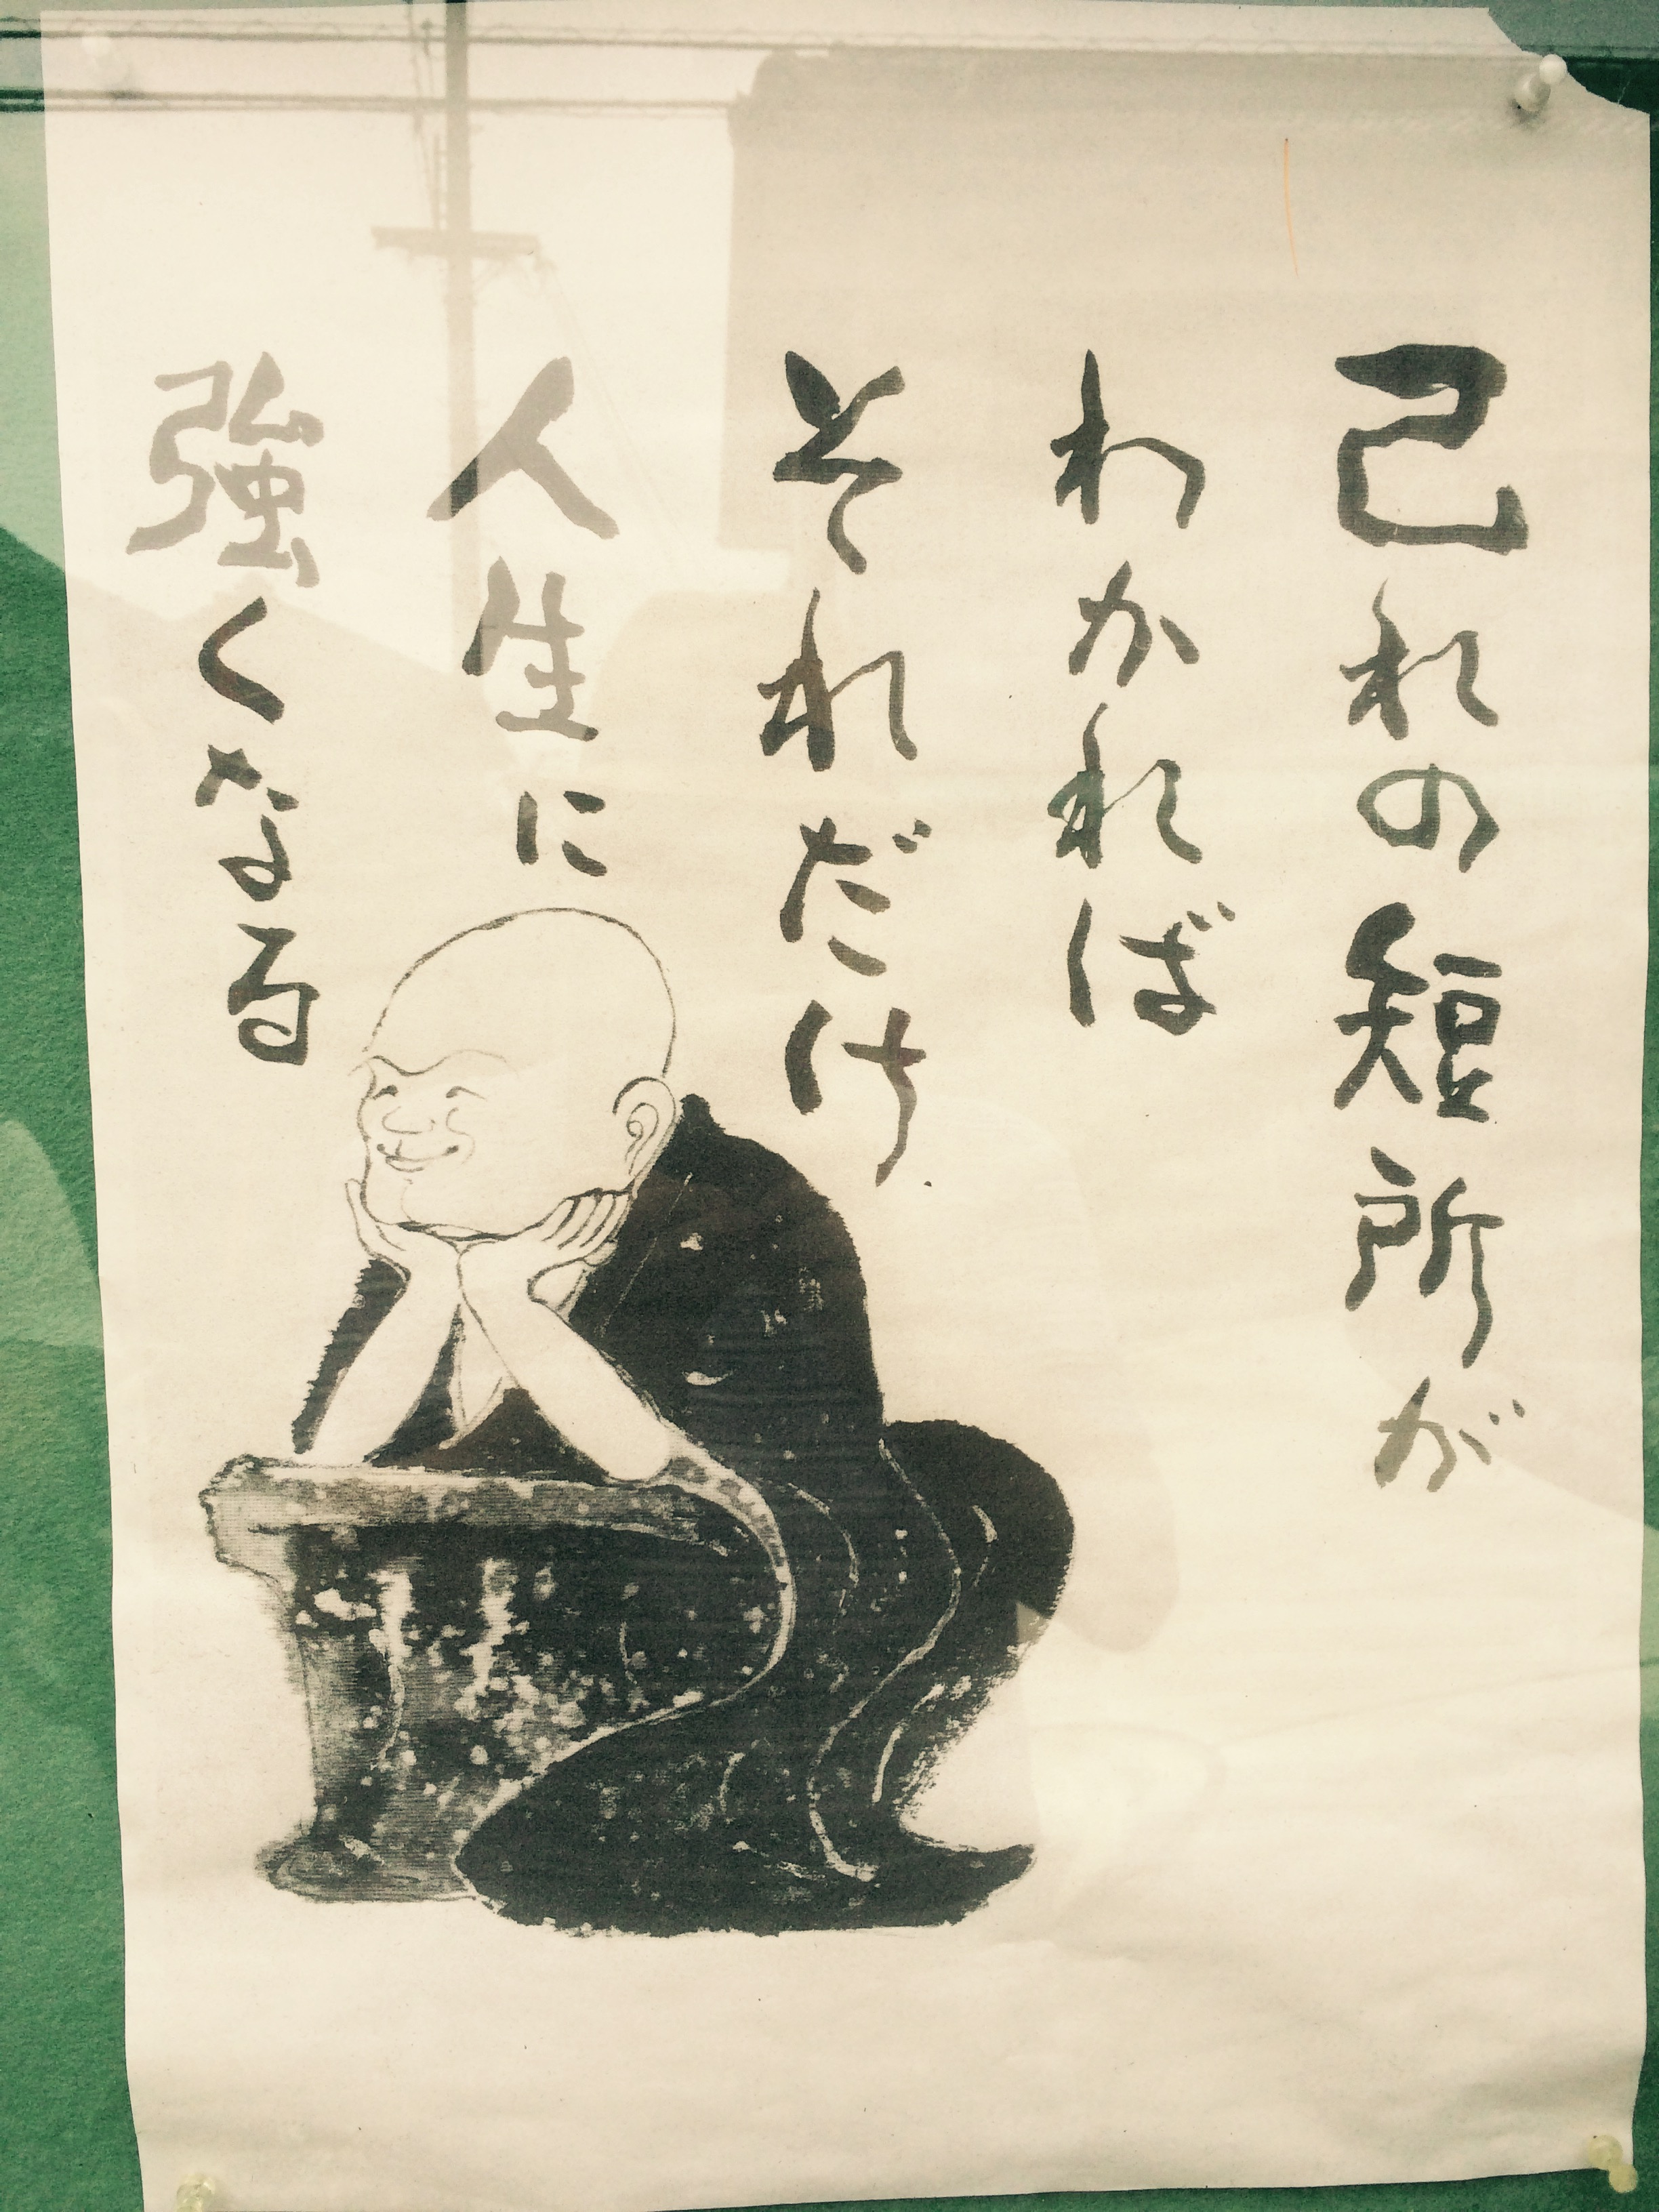 己れの短所が
わかれば
それだけ
人生に
強くなる